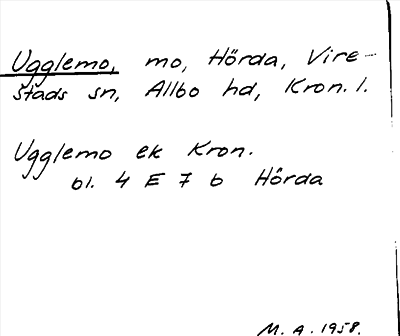 Ugglemo, mo, Hörda, Vire-
stads sn, Allbo hd, Kron. l.
Ugglemo ek Kron.
bl. 4 E 7 b Hörda
M. A. 1958.